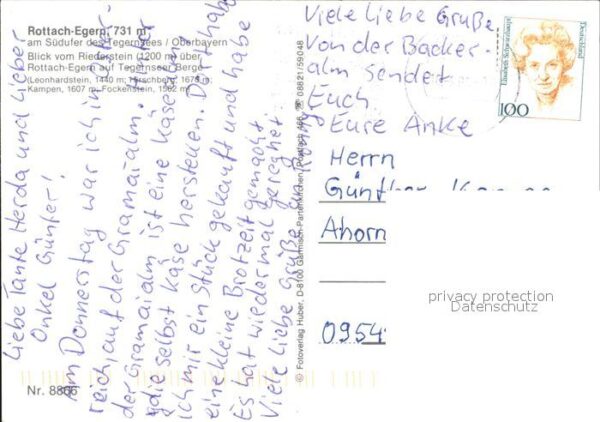 Rottach-Egern, 731 m
am Südufer des Tegernsees / Oberbayern
Blick vom Riederstein (1200 m) über
Rottach-Egern auf Tegernseer Berge
(Leonhardstein, 1440 m; Hirschberg, 1670 m;
Kampen, 1607 m; Fockenstein, 1562 m)
Liebe Tante Herda und lieber
Onkel Günter!
Am Donnerstag war ich in Öster-
reich auf der Gramaialm. Auf
der Gramaialm ist eine Käserei
die selbst Käse herstellen. Dort habe
ich mir ein Stück gekauft und habe
eine kleine Brotzeit gemacht
Es hat wiedermal geregnet
Viele Liebe Grüße an
Nr. 8866
© Fotoverlag Huber, D-8100 Garmisch-Partenkirchen, Postfach 466, ☏ 08821/59048
Viele liebe Grüße
von der Backer-
alm sendet
Euch
Eure Anke
Elisabeth Schwarzhaupt
Deutschland
100
Herrn
Günther
Ahorn
0954
privacy protection
Datenschutz